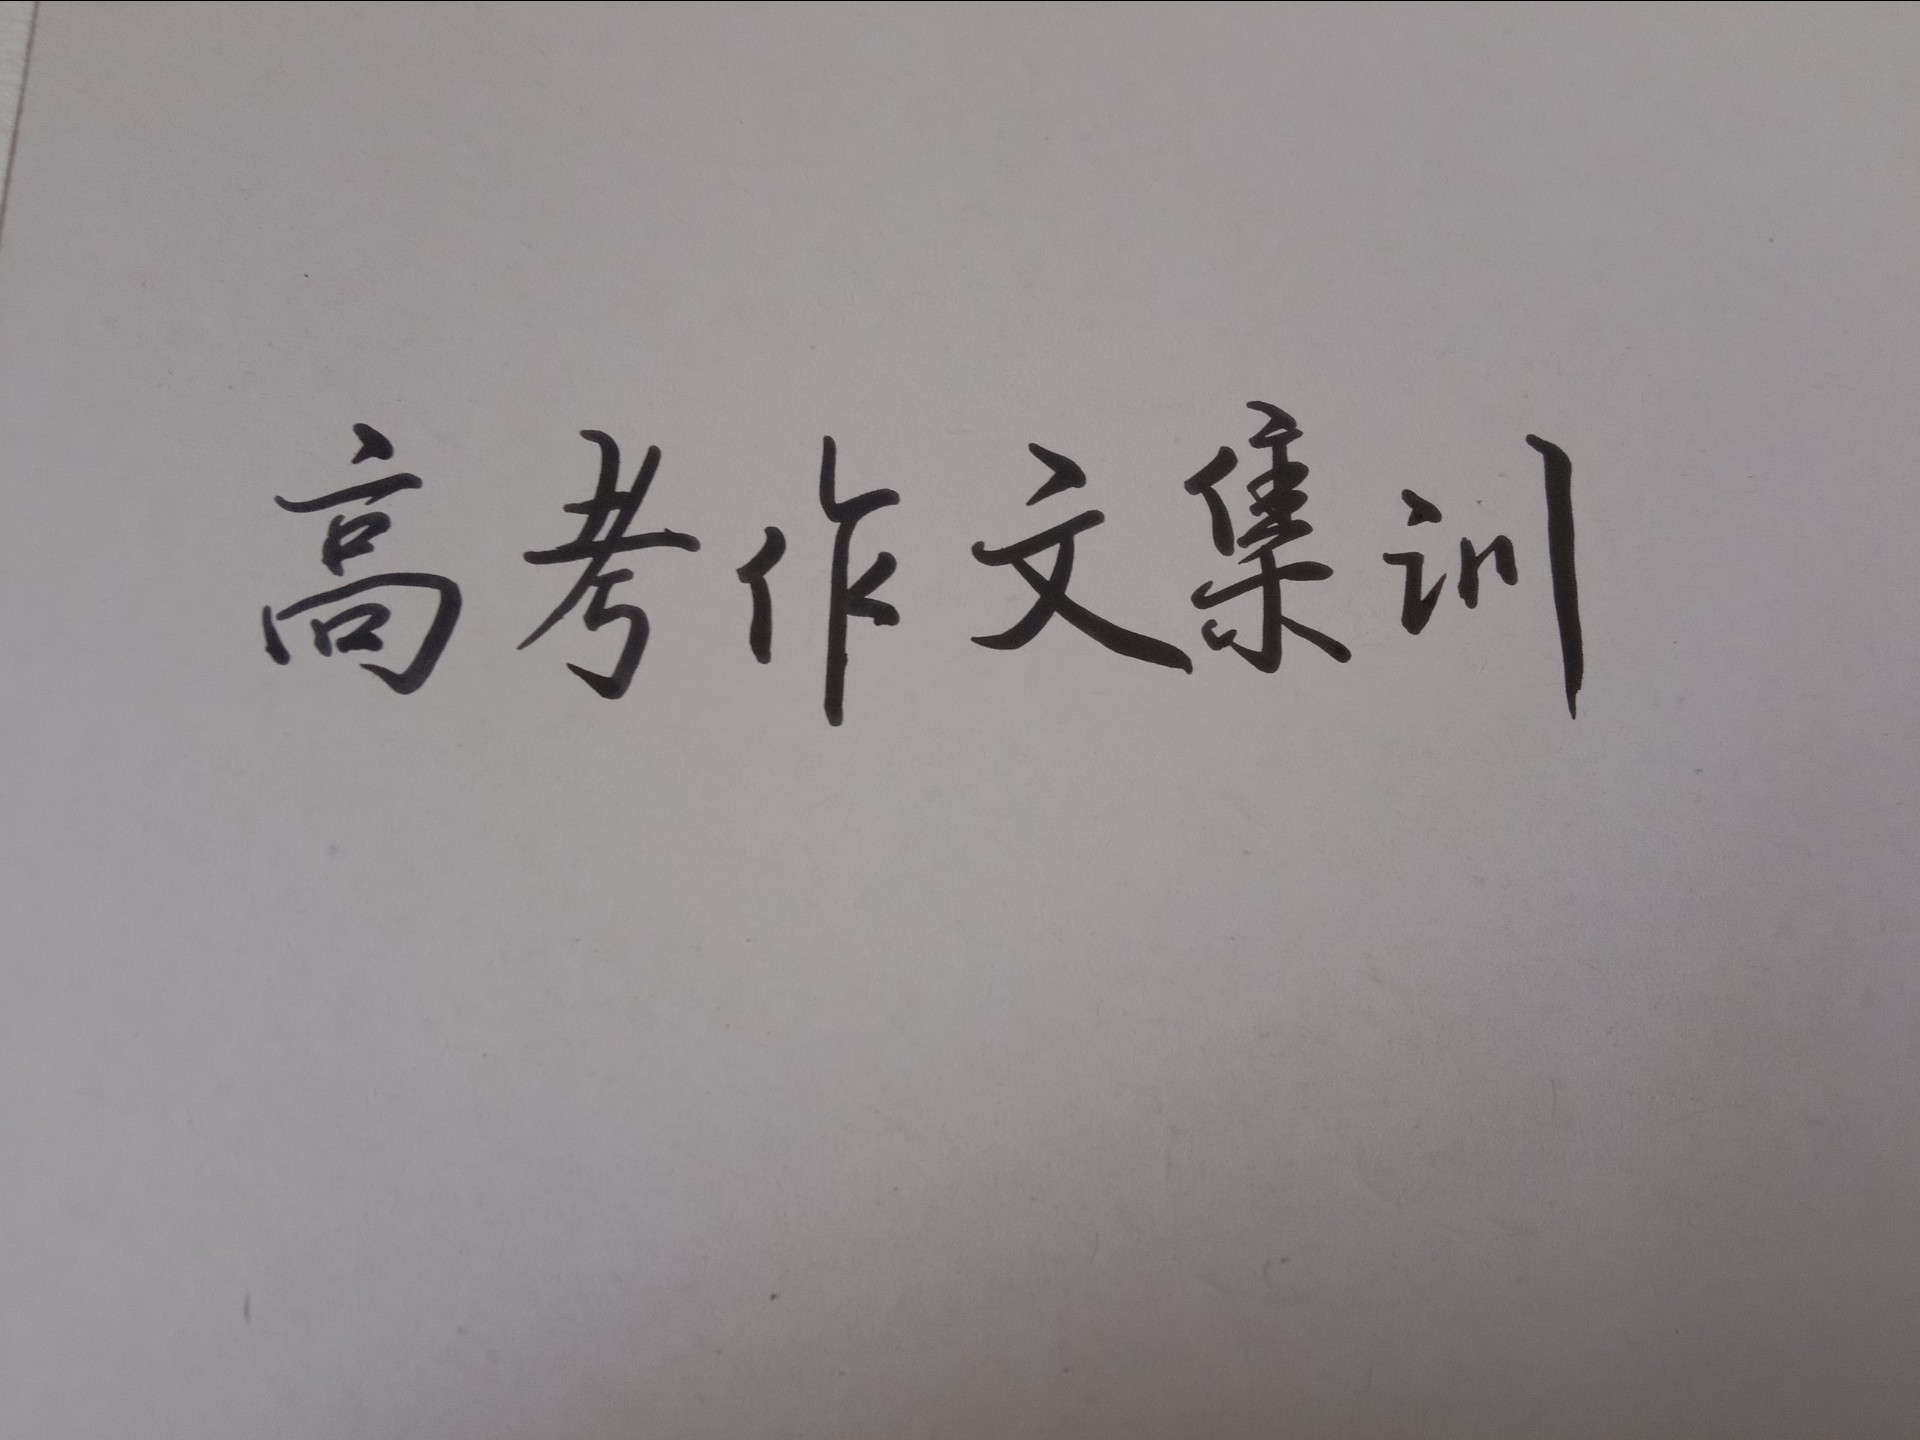 高考作文集训